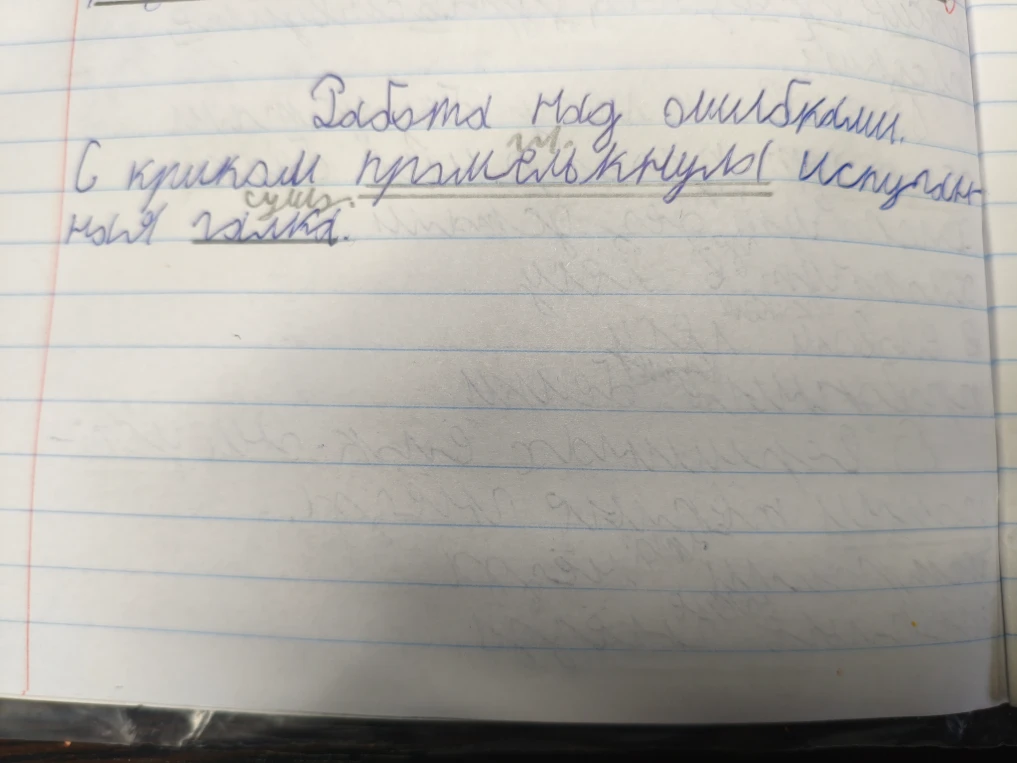 Работа над ошибками.
гл.
С криком прамелькнула испуган-
сущ.
ная галка.